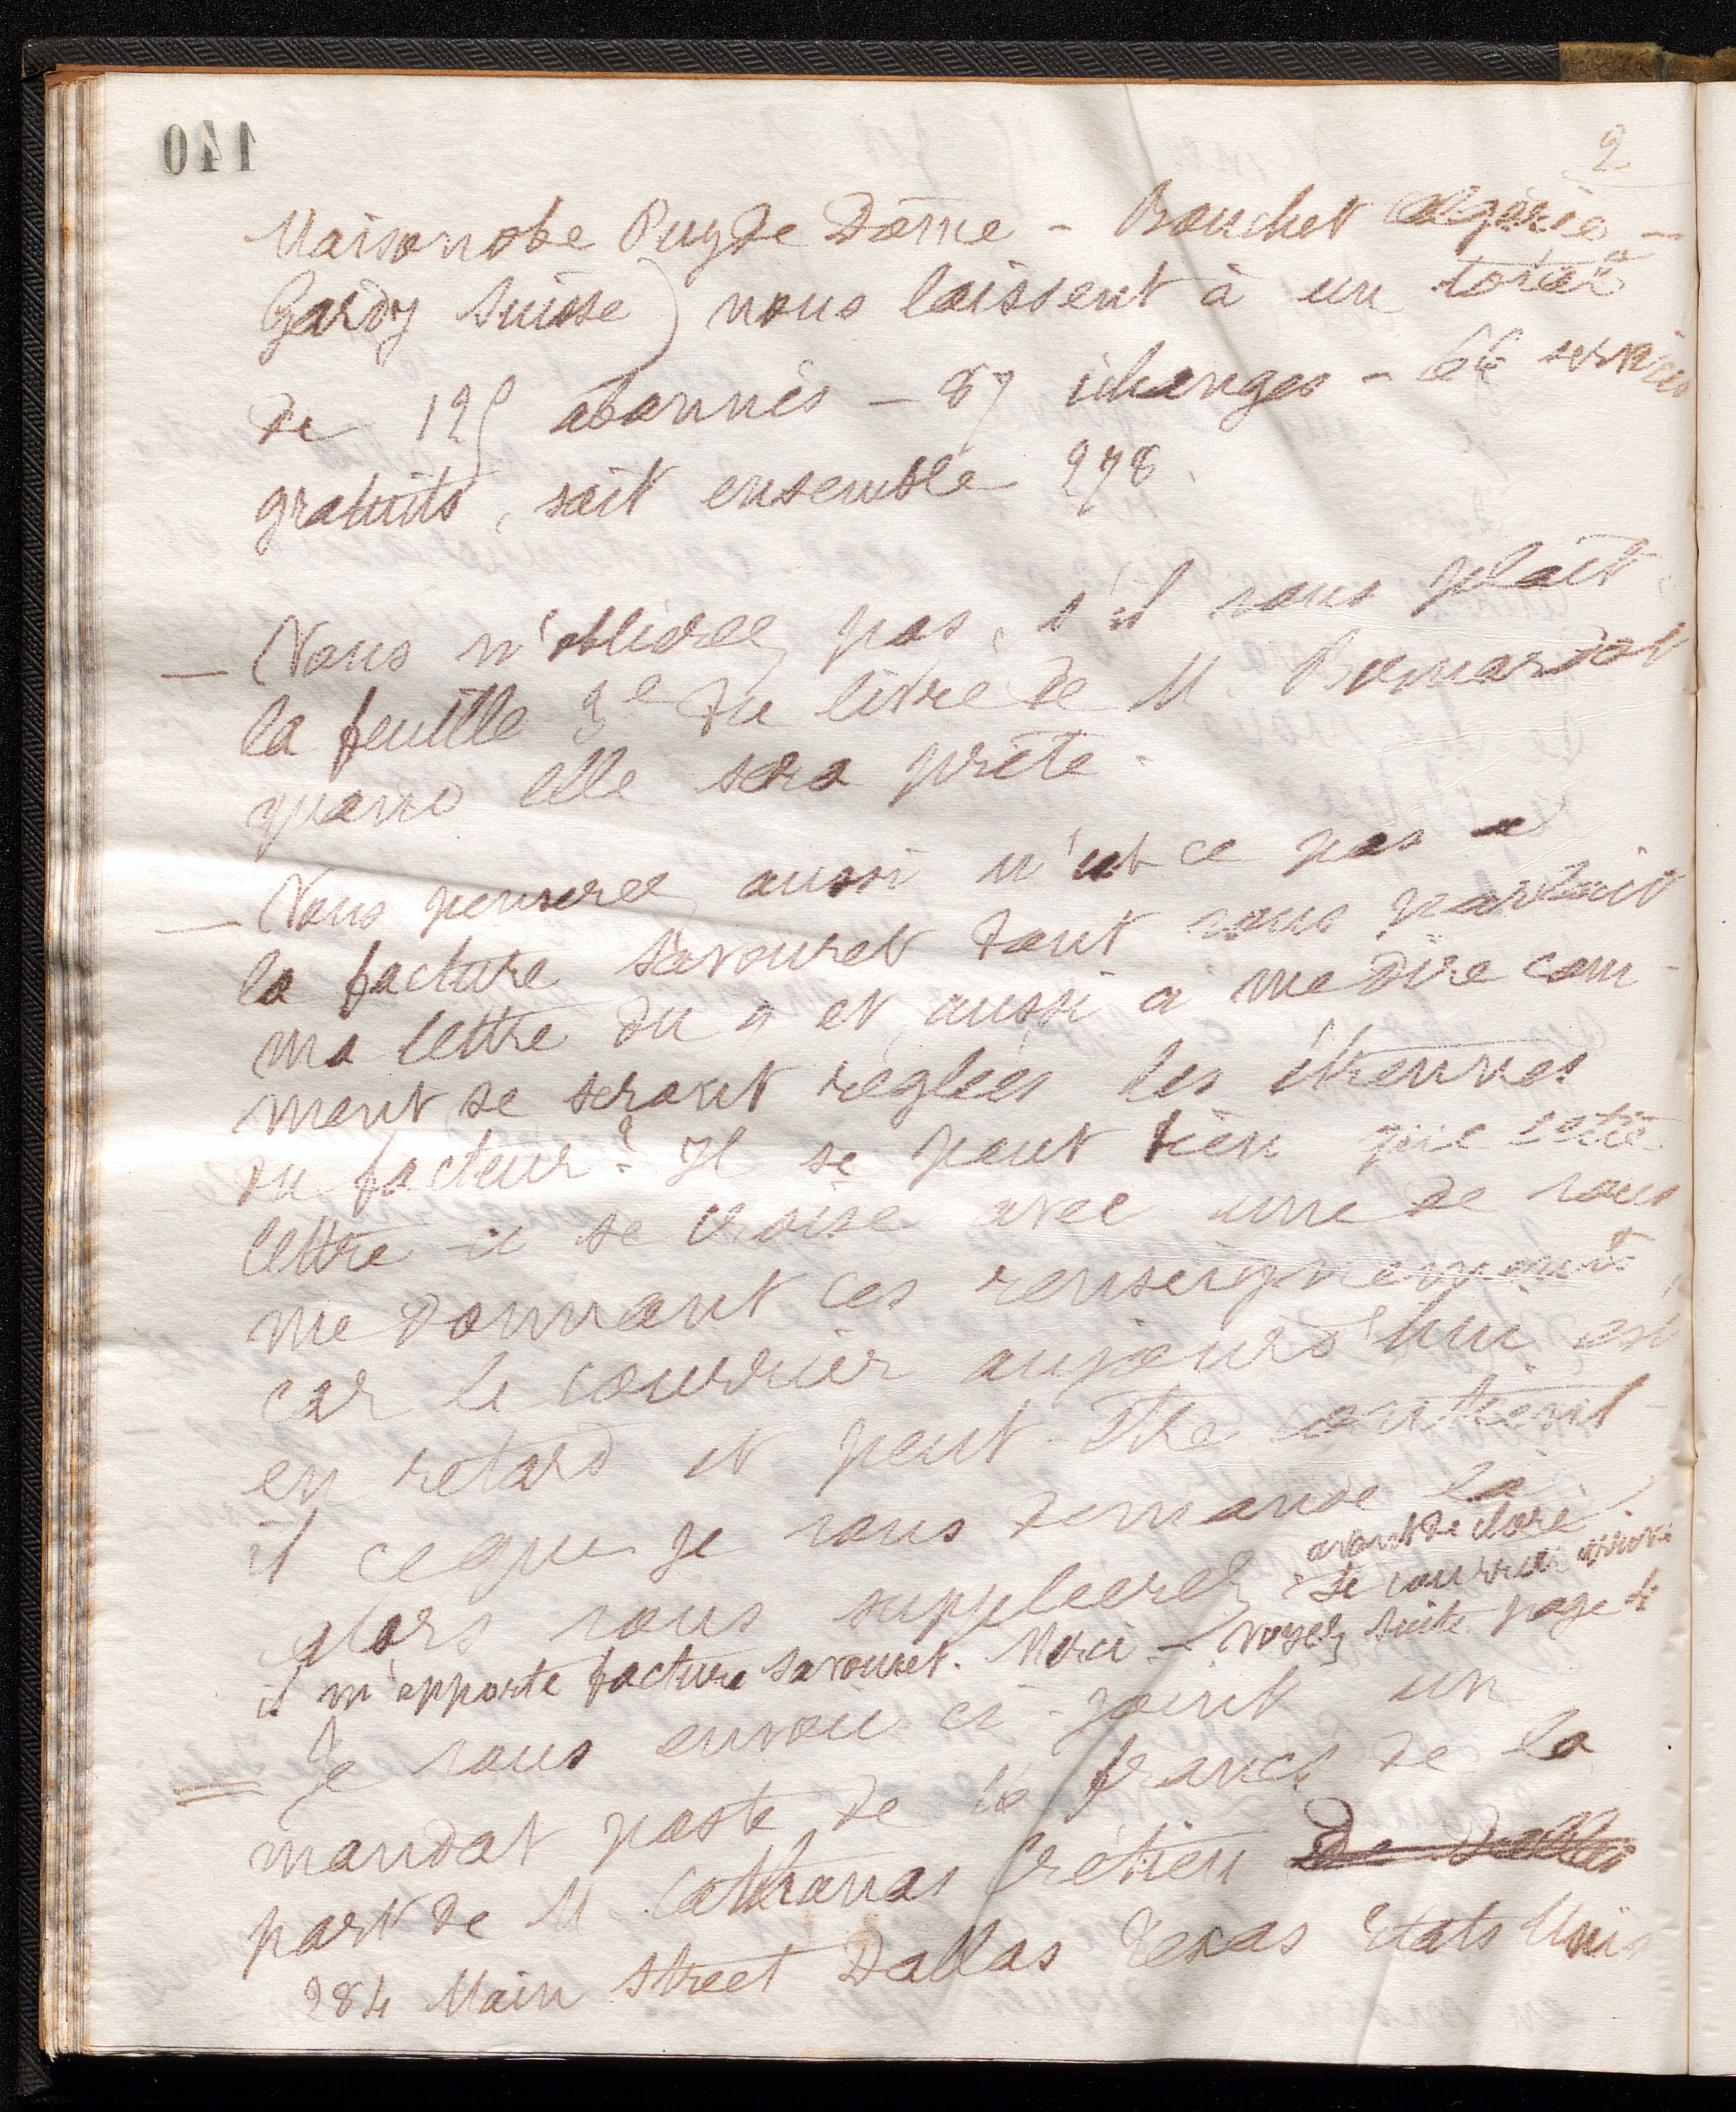 140
2
Maisonobe Puy de Dôme - Bouchet Algérie -
Gardy Suisse) nous laissent à un total
de 125 abonnés - 87 échanges - 66 services
gratuits, soit ensemble 278.
— Vous n'oublierez pas, s'il vous plait,
la feuille 3e du livre de M. Bernardot
quand elle sera prête.
— Vous penserez aussi n'est ce pas à
la facture Savouret dont vous parlait
ma lettre du 9 et aussi à me dire com-
ment se seront réglées les étrennes
du facteur? Il se peut bien que cette
lettre-ci se croise avec une de vous
me donnant ces renseignements
car le courrier aujourd'hui est
en retard et peut-être contient-
il ce que je vous demande là
alors vous suppléerez avant de clore
le courrier arrive
il m'apporte facture Savouret. Merci - voyez suite page 4
= Je vous envoie ci-joint un
mandat poste de francs de la
part de M. Cathanas Crétien de Dallas
284 Main Street Dallas Texas États Unis